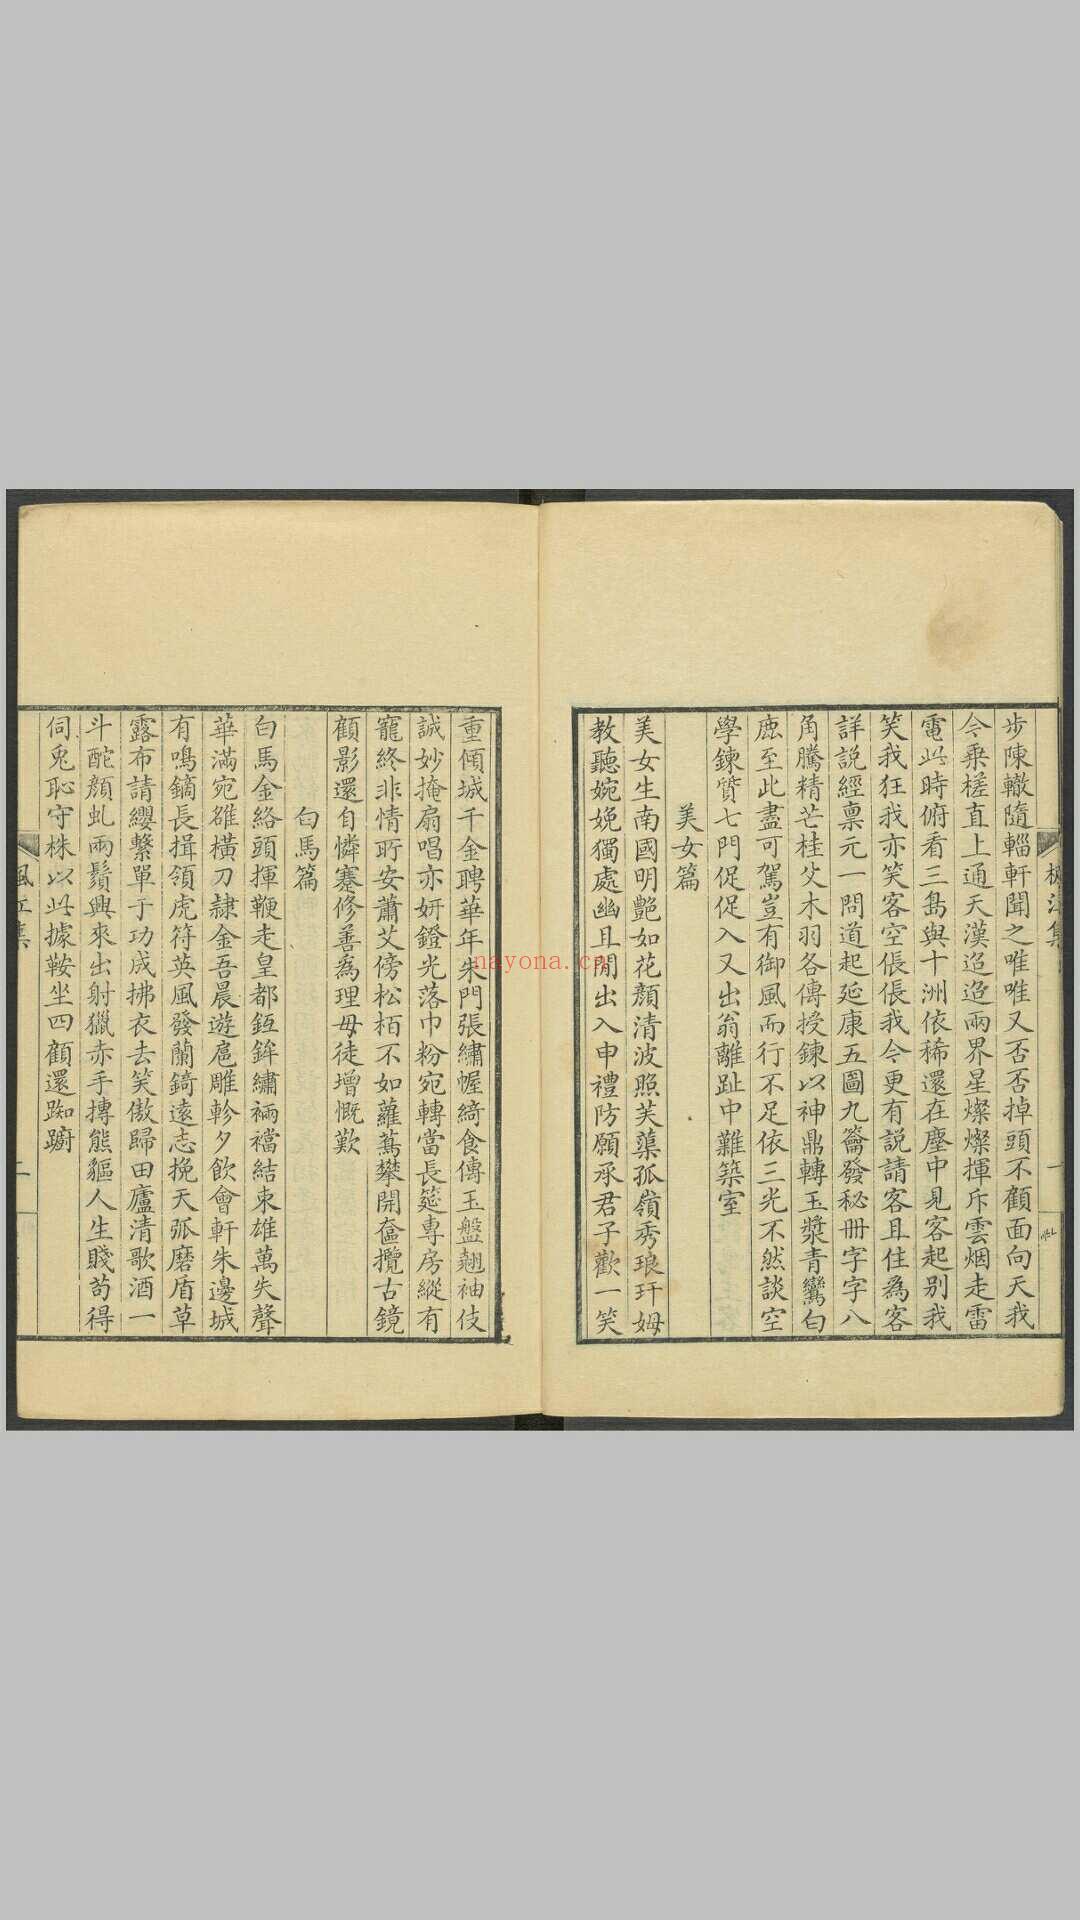 步陳轍隨輜軒聞之唯唯又否否掉頭不顧面向天我
今乗槎直上通天漢迢迢兩界星燦燦揮斥雲烟走雷
電此時俯看三島與十洲依稀還在塵中見客起别我
笑我狂我亦笑客空倀倀我今更有説請客且住為客
詳說經稟元一問道起延康五圖九籥發秘冊字字八
角騰精芒桂父木羽各傳授鍊以神鼎轉玉漿青鸞白
鹿至此盡可駕豈有御風而行不足依三光不然談空
學鍊質七門促促入又出翁離趾中難築室
美女篇
美女生南國明艷如花顔清波照芙蕖孤嶺秀琅玕姆
教聽婉娩獨處幽且閒出入申禮防願承君子歡一笑
重傾城千金聘華年朱門張繡幄綺食傳玉盤翹袖伎
誠妙掩扇唱亦妍鐙光落巾粉宛轉當長筵專房縱有
寵終非情所安蕭艾傍松栢不如蘿蔦攀開奩攬古鏡
顧影還自憐蹇修善為理毋徒增慨歎
白馬篇
白馬金絡頭揮鞭走皇都鉦鉾繡裲襠結束雄萬夫聲
華滿宛雒橫刀隷金吾晨遊扈雕軫夕飲會軒朱邊城
有鳴鏑長揖領虎符英風發蘭錡遠志挽天弧磨盾草
露布請纓繫單于功成拂衣去笑傲歸田廬清歌酒一
斗酡顔虬兩鬚興來出射獵赤手摶熊貙人生賤苟得
伺兎恥守株以此據鞍坐四顧還踟躕
楓江集
一
二
nayona.cn